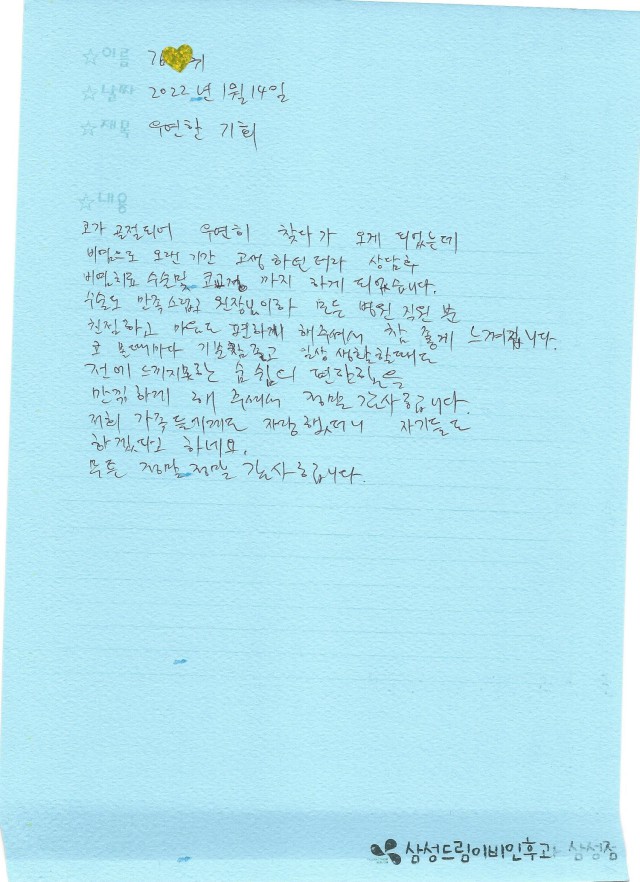 ☆이름 김 기
☆날짜 2022년 1월 14일
☆제목 우연한 기회
☆내용
코가 골절되어 우연히 찾다가 오게 되었는데
비염으로 오랜 기간 고생 하던터라 상담후
비염치료 수술및 코교정 까지 하게 되었습니다.
수술도 만족스럽고 원장님이하 모든 병원 직원 분
친절하고 마음도 편하게 해주셔서 참 좋게 느껴집니다.
코 볼때마다 기분참좋고 일상 생활할때도
전에 느끼지못한 숨쉼의 편안함을
만끽하게 해 주셔서 정말 감사합니다.
저희 가족들에게도 자랑했더니 자기들도
하겠다고 하네요.
무튼 정말 정말 감사합니다.
삼성드림이비인후과 삼성점